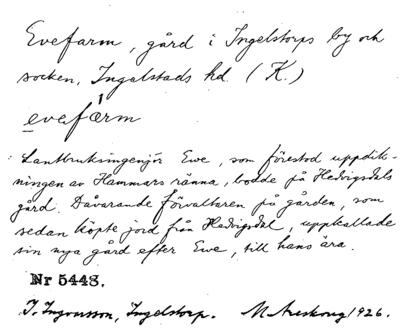 Evefarm, gård i Ingelstorps by och
socken, Ingelstads hd. (K.)
evefarm
Lantbruksingenjör Ewe, som förestod uppdik-
ningen av Hammars ränna, bodde på Hedvigsdals
gård. Dåvarande förvaltaren på gården, som
sedan köpte jord från Hedvigsdal, uppkallade
sin nya gård efter Ewe, till hans ära.
Nr 5448.
J. Ingvarsson, Ingelstorp. M Areskoug 1926.